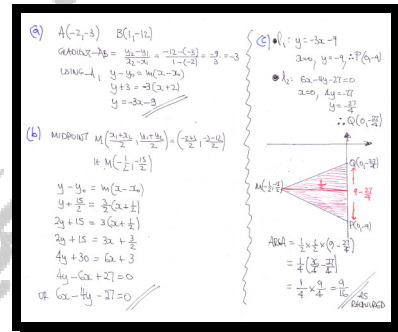 (a) A(-2,-3) B(1,-12)
GRADIENT AB = \frac{y₂-y₁}{x₂-x₁} = \frac{-12-(-3)}{1-(-2)} = \frac{-9}{3} = -3
USING A, y-y₀ = m(x-x₀)
y+3 = -3(x+2)
y = -3x-9
(b) MIDPOINT M(\frac{x₁+x₂}{2}, \frac{y₁+y₂}{2}) = (\frac{-2+1}{2}, \frac{-3-12}{2})
IE M(-\frac{1}{2}, -\frac{15}{2})
y-y₀ = m(x-x₀)
y+\frac{15}{2} = \frac{3}{2}(x+\frac{1}{2})
2y+15 = 3(x+\frac{1}{2})
2y+15 = 3x+\frac{3}{2}
4y+30 = 6x+3
4y-6x+27=0
OR 6x-4y-27=0
(c) • l₁: y=-3x-9
x=0, y=-9, ∴P(0,-9)
• l₂: 6x-4y-27=0
x=0, 4y=-27
y=-\frac{27}{4}
∴ Q(0,-\frac{27}{4})
Q(0,-\frac{27}{4})
M(-\frac{1}{2},-\frac{15}{2})
\frac{1}{2}
9-\frac{27}{4}
P(0,-9)
AREA = \frac{1}{2}×\frac{1}{2}×(9-\frac{27}{4})
= \frac{1}{4}[\frac{36}{4}-\frac{27}{4}]
= \frac{1}{4}×\frac{9}{4} = \frac{9}{16}
AS REQUIRED